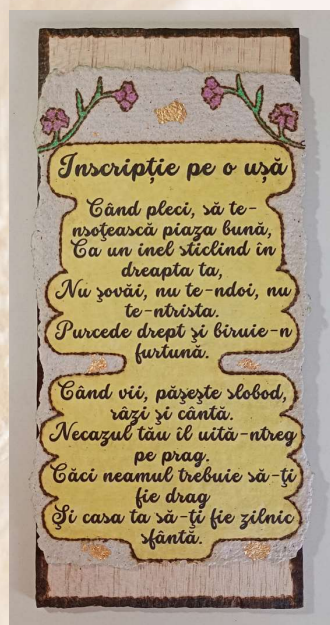 Inscripție pe o ușă
Când pleci, să te-
nsoțească piaza bună,
Ca un inel sticlind în
dreapta ta,
Nu șovăi, nu te-ndoi, nu
te-ntrista.
Purcede drept și biruie-n
furtună.
Când vii, pășește slobod,
râzi și cântă.
Necazul tău îl uită-ntreg
pe prag.
Căci neamul trebuie să-ți
fie drag
Și casa ta să-ți fie zilnic
sfântă.